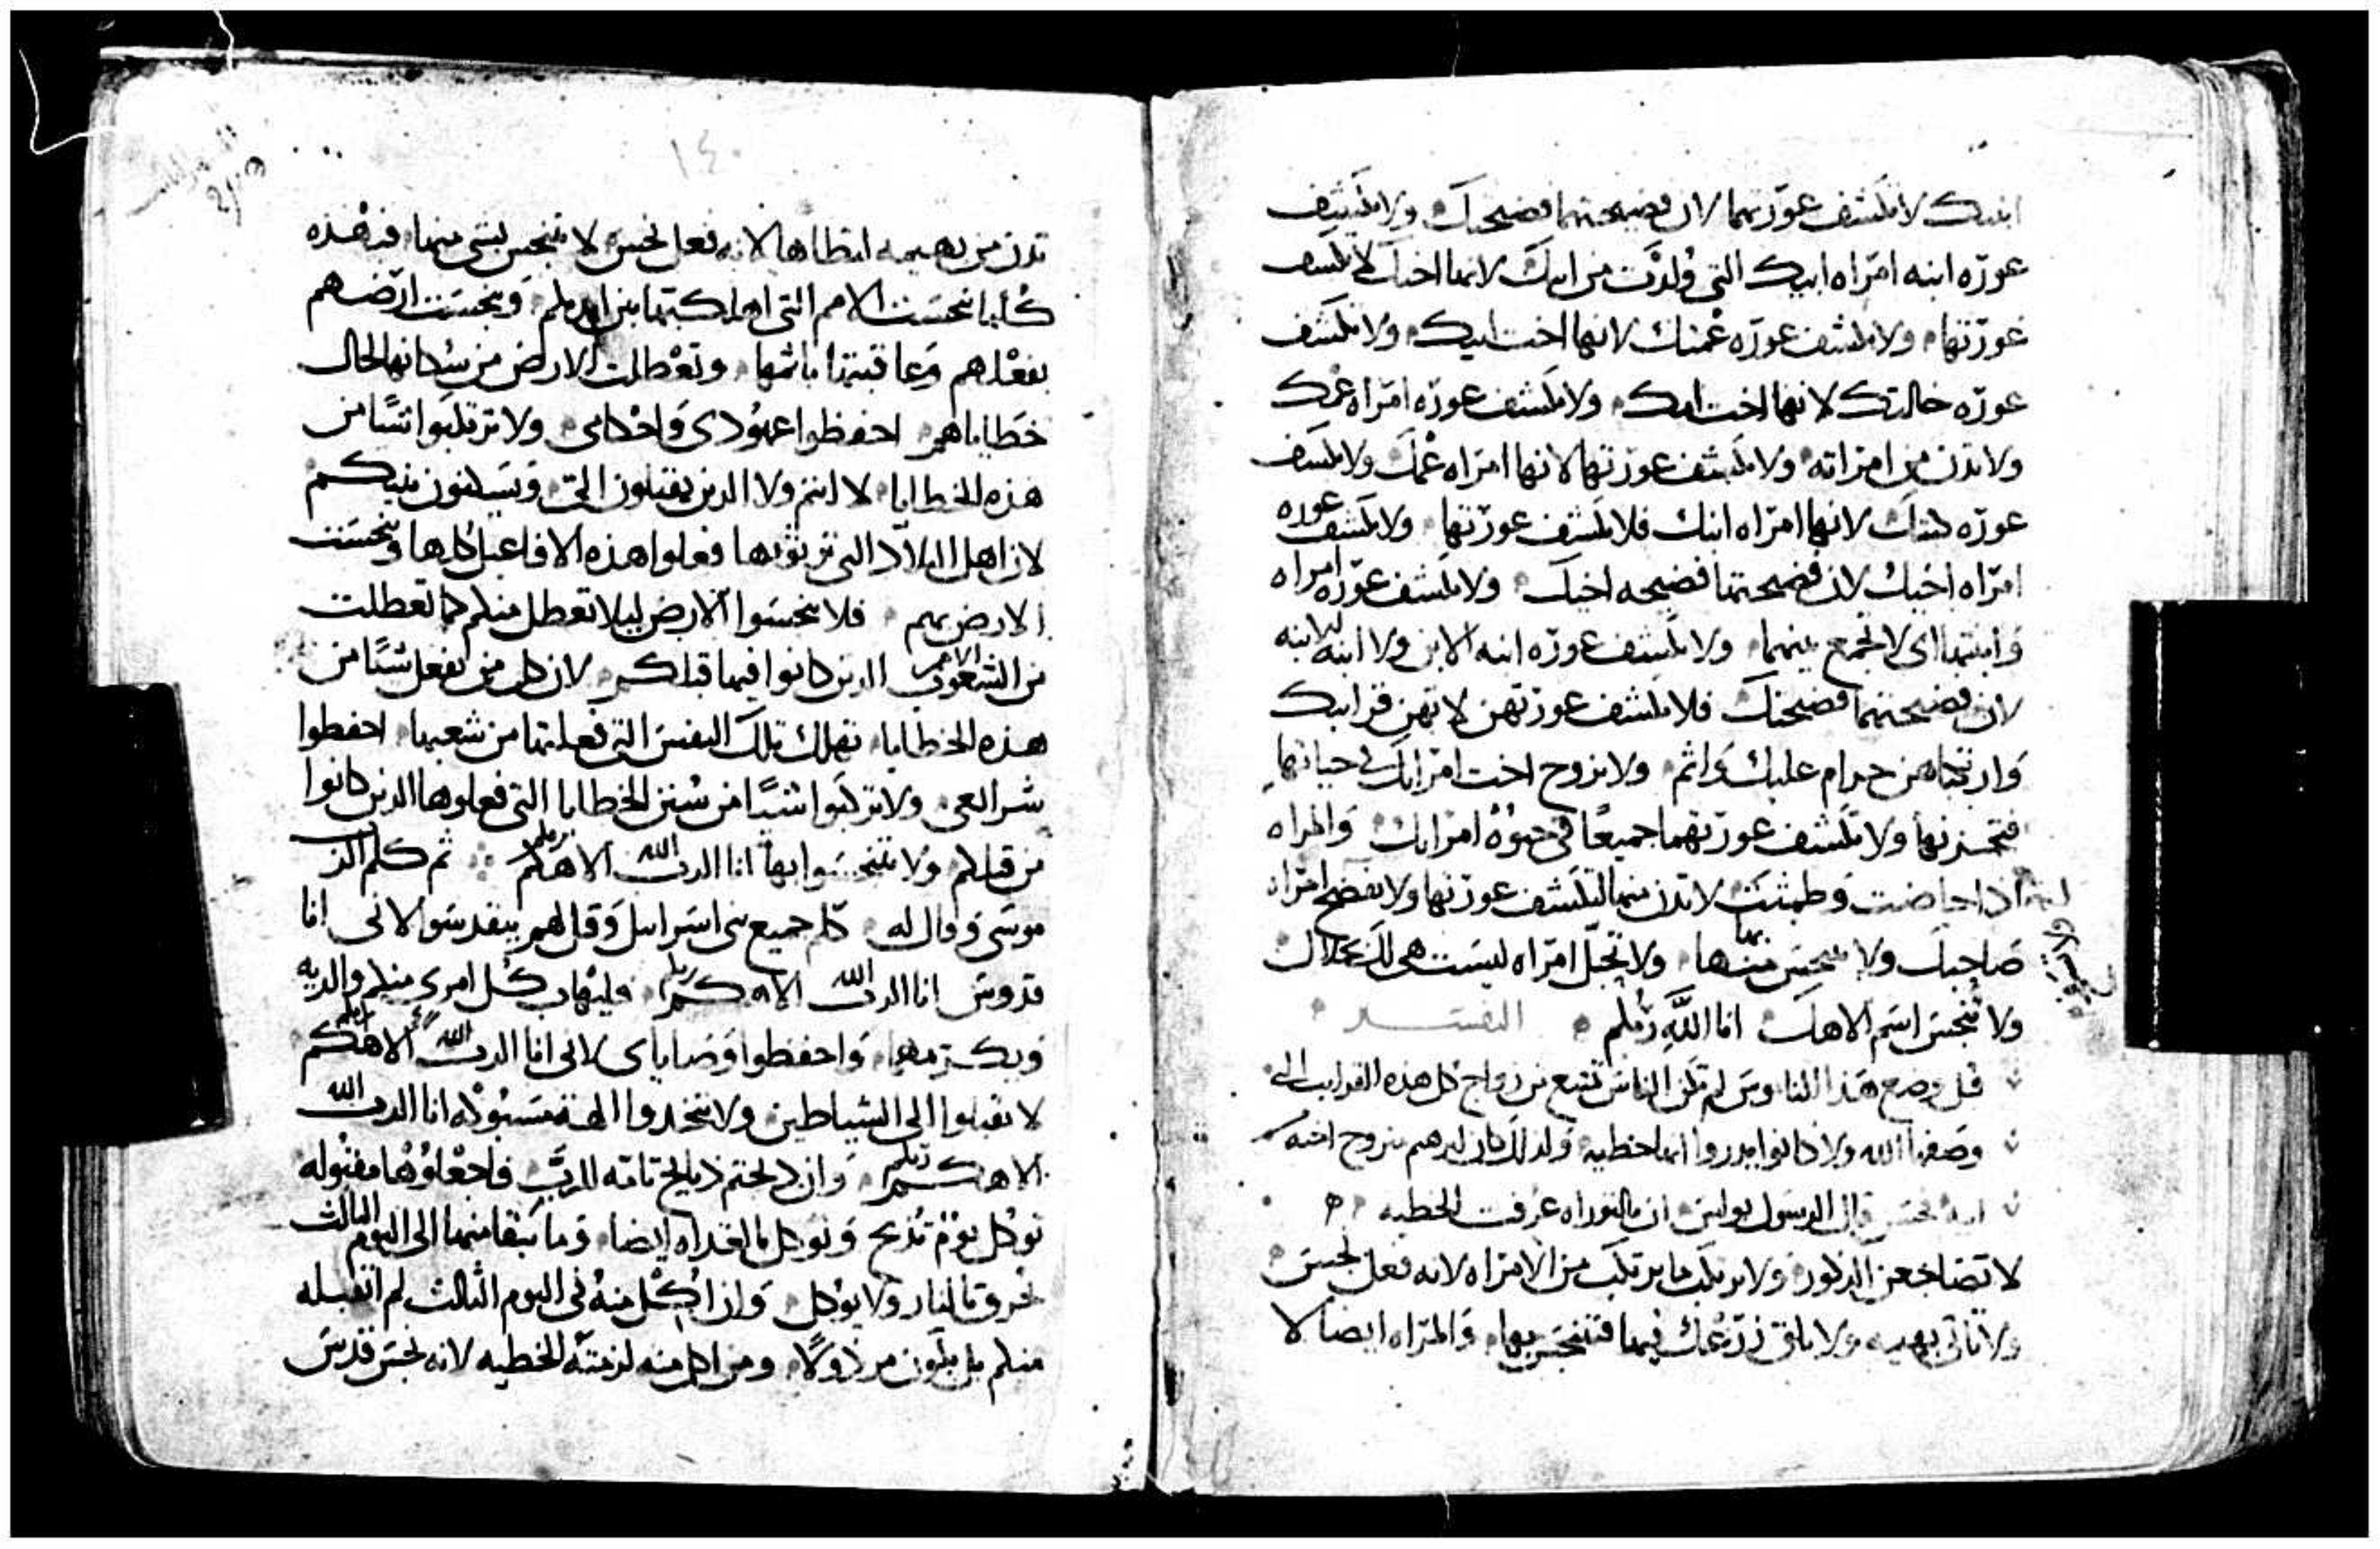 ابنتك لا تكشف عورتهما لان فضيحتهما فضيحتك ولا تكشف
عورة ابنه امراه ابيك التي ولدت من ابيك لانها اختك لا تكشف
عورتها ولا تكشف عوره عمتك لانها اخت ابيك ولا تكشف
عوره خالتك لانها اخت امك ولا تكشف عوره امراه عمك
ولا تدن من امراته ولا تكشف عورتها لانها امراه عمك ولا تكشف
عوره كنتك لانها امراه ابنك فلا تكشف عورتها ولا تكشف عوره
امراه اخيك لان فضيحتها فضيحه اخيك ولا تكشف عوره امراه
وابنتها اي لا تجمع بينهما ولا تكشف عوره ابنه الابن ولا ابنه الابنه
لان فضيحتهما فضيحتك فلا تكشف عورتهن لانهن قرابتك
حرام عليك واثم ولا تزوج اخت امراتك في حياتها
فتحزنها ولا تكشف عورتهما جميعا في حيوه امراتك والمراه
اذا حاضت وطمثت لا تدن منها لتكشف عورتها ولا تفضح امراه
صاحبك ولا تنجس بها ولا تحبل امراه ليست هي لك بحلال
ولا تنجس اسم الاهك انا الله ربكم التفسير
قبل وضع هذا الناموس لم تكن الناس تمتنع من زواج كل هذه القرايب التي
وصفها الله ولا كانوا يدروا انها خطيه ولذلك كان ابرهيم متزوج اخته
قال الرسول بولس ان بالتوراه عرفت الخطيه
لا تضاجعن الذكور ولا ترتكب ما يرتكب من الامراه لانه فعل نجس
ولا تاتي بهيمه ولا تلقي زرعك فيها فتتنجس بها والمراه ايضا لا
١٤٠
تدن من بهيمه لتطاها لانه فعل نجس لا تتنجس بشي منها فبهذه
كلها تنجست الامم التي اهلكتها بين ايديكم وتنجست ارضهم
بفعلهم وعاقبتها باثمها وتعطلت الارض من سكانها لحال
خطاياهم احفظوا عهودي واحكامي ولا ترتكبوا شيا من
هذه الخطايا لا انتم ولا الذين يقبلون الي ويسكنون بينكم
لان اهل البلاد التي ترثونها فعلوا هذه الافاعيل كلها وتنجست
الارض بهم فلا تنجسوا الارض ليلا تعطل منكم كما تعطلت
من الشعوب الامم الذين كانوا فيما قبلكم لان كل من يفعل شيا من
هذه الخطايا تهلك تلك النفس التي فعلتها من شعبها احفظوا
شرايعي ولا ترتكبوا شيا من سنن الخطايا التي فعلوها الذين كانوا
من قبلكم ولا تتنجسوا بها انا الرب الله الاهكم ربكم ثم كلم الرب
موسى وقال له كلم جميع بني اسراييل وقل لهم يتقدسوا لاني انا
قدوس انا الرب الله الاهكم ربكم وليهاب كل امرى منكم والديه
ويكرمهما واحفظوا وصاياي لاني انا الرب الله الاهكم ربكم
لا تقبلوا الى الشياطين ولا تتخذوا الهة مسبوكه انا الرب الله
الاهكم ربكم وان ذبحتم ذبايح تامه للرب فاجعلوها مقبوله
توكل يوم تذبح وتوكل بالغداه ايضا وما تبقا منها الى اليوم الثالث
تحرق بالنار ولا يوكل وان اكل منه في اليوم الثالث لم اتقبله
منكم بل يكون مرذولا ومن اكل منه لزمته الخطيه لانه نجس قدس